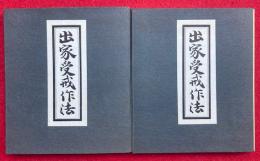 出家受戒作法
出家受戒作法